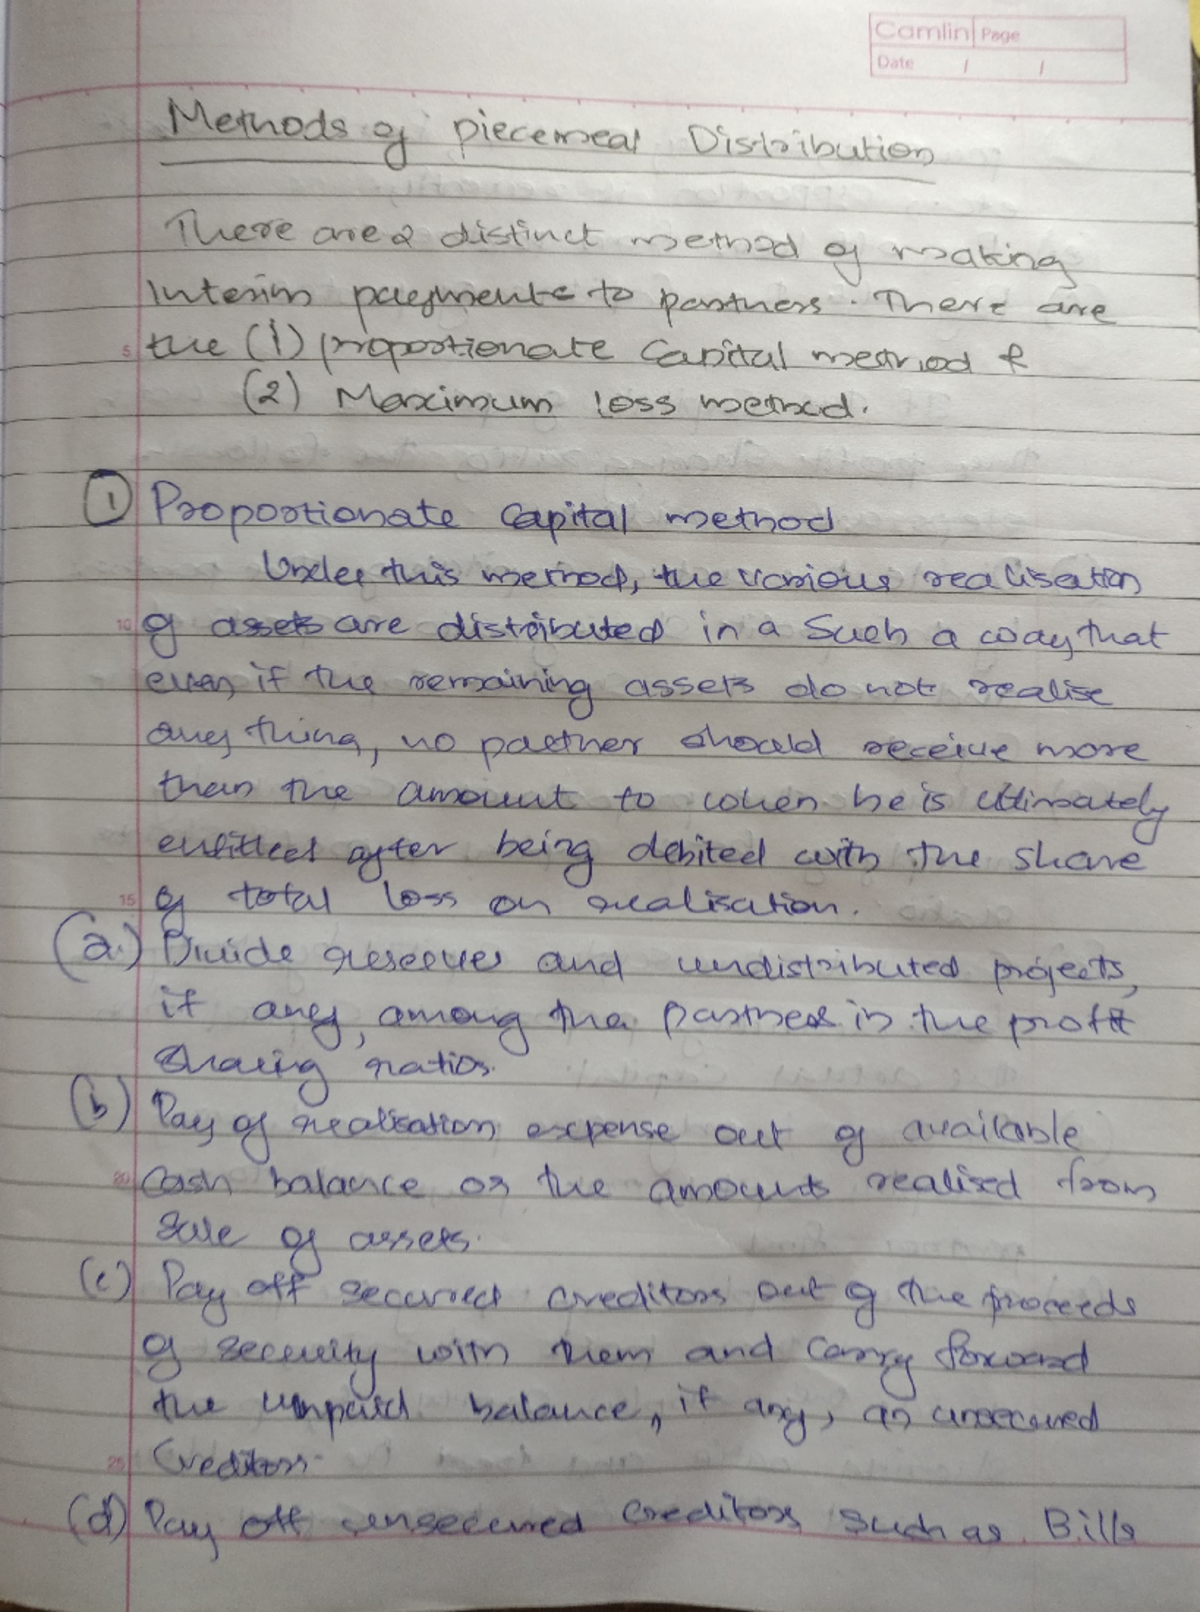 Camlin Page
Date / /
Methods of piecemeal Distribution
There are 2 distinct method of making
Interim payments to partners. There are
the (1) proportionate Capital method &
(2) Maximum loss method.
1 Proportionate Capital method
Under this method, the various realisation
of assets are distributed in a Such a way that
even if the remaining assets do not realise
any thing, no partner should receive more
than the amount to when he is ultimately
entitled after being debited with the share
of total loss on realisation.
(a.) Divide reserves and undistributed projects,
if any, among the partners in the profit
sharing ratios.
(b) Pay of realisation expense out of available
Cash balance or the amounts realised from
Sale of assets.
(c) Pay off secured creditors out of the proceeds
of security with them and carry forward
the unpaid balance, if any, as unsecured
Creditors.
(d) Pay off unsecured creditors such as Bills